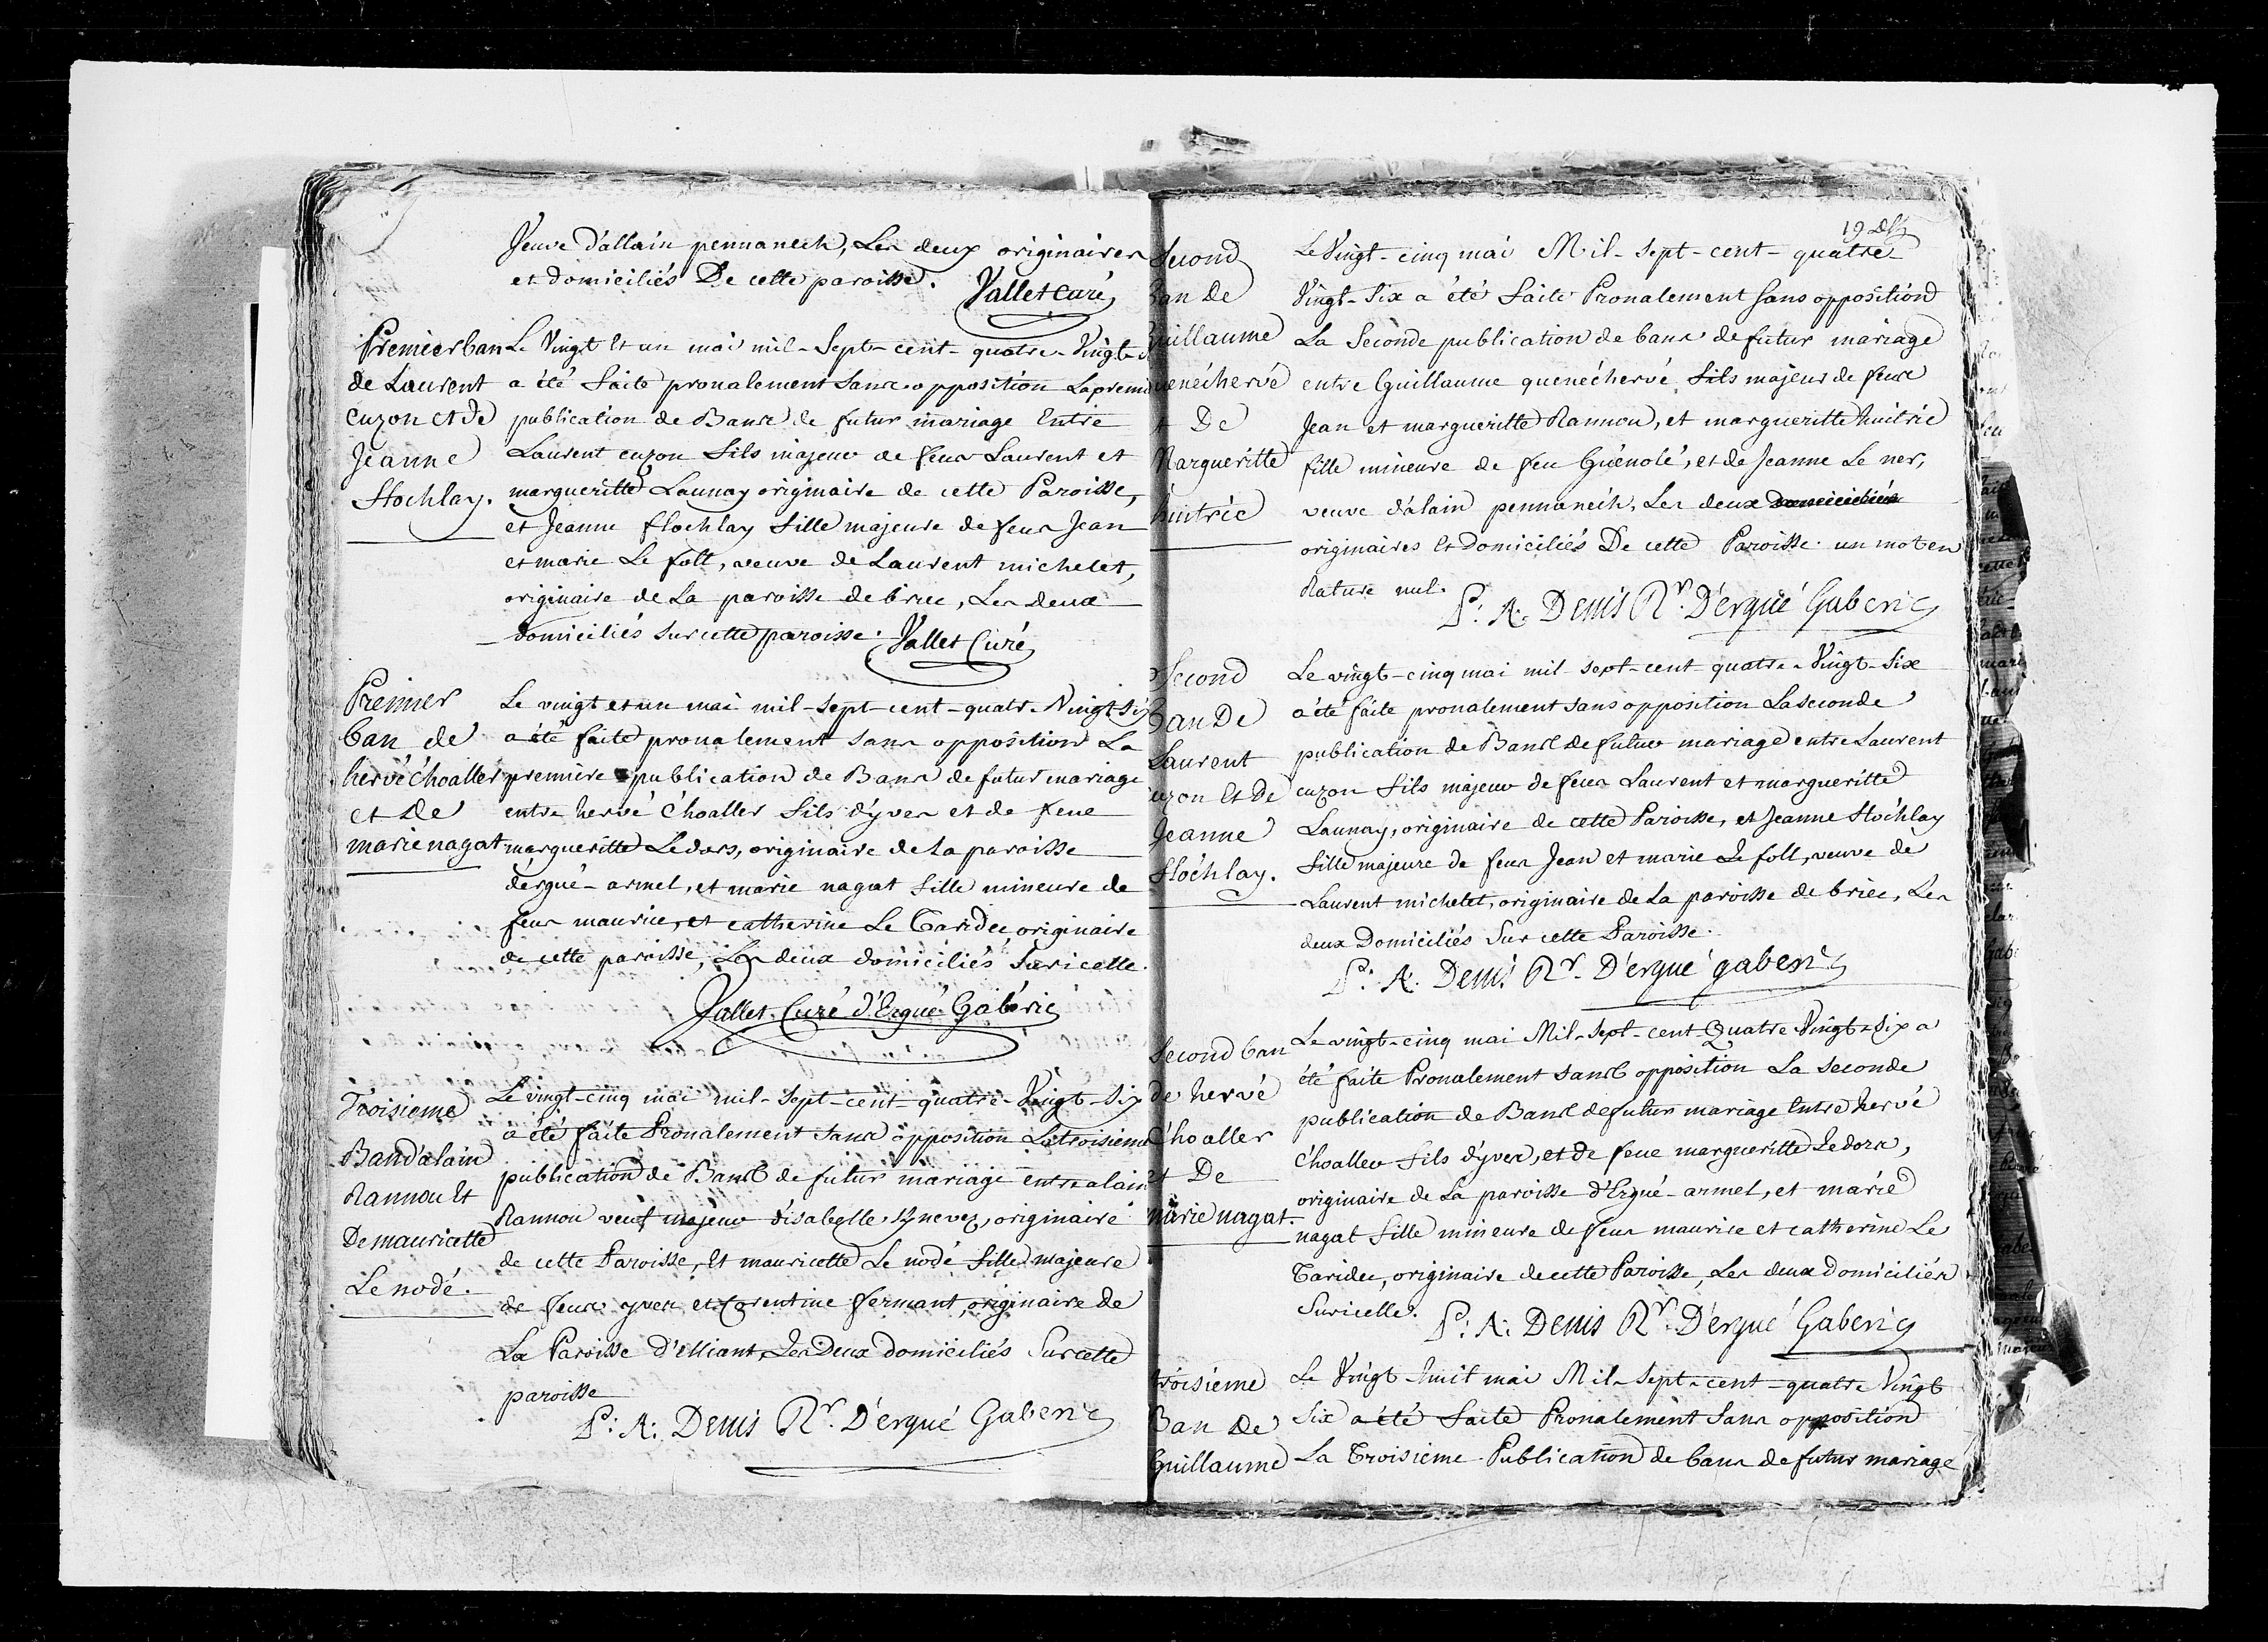 Veuve d'allain pennanech, Les deux originaires
et domiciliés De cette paroisse. Vallet curé
Premier ban
de Laurent
cuzon et de
Jeanne
flochlay.
Le Vingt Et un mai mil-Sept-cent-quatre-Vingt-
a été faite pronalement Sans opposition La premi
publication de Bans de futur mariage Entre
Laurent cuzon fils majeur de feus Laurent et
margueritte Launay originaire de cette Paroisse,
et Jeanne flochlay fille majeure de feus Jean
et marie Le foll, veuve de Laurent michelet,
originaire de La paroisse de briec, Les deux
domiciliés Sur cette paroisse. Vallet Curé
Premier
ban de
hervé c'hoaller
et de
marie nagat
Le vingt et un mai mil-sept-cent-quatr-Vingt-six
a été faite pronalement sans opposition La
première publication de Bans de futur mariage
entre hervé c'hoaller fils d'yves et de feue
margueritte Ledors, originaire de La paroisse
d'ergué-armel, et marie nagat fille mineure de
feus maurice, et catherine Le Caridec, originaire
de cette paroisse, Les deux domiciliés Sur icelle.
Vallet Curé d'Ergué-Gabéric
Troisieme
Ban d'alain
Rannou Et
De mauricette
Le nodé.
Le vingt-cinq mai mil-sept-cent-quatre-Vingt-six
a été faite Pronalement sans opposition La troisieme
publication de Bans de futur mariage entre alain
Rannou veuf majeur d'isabelle, originaire
de cette Paroisse, Et mauricette Le nodé fille majeure
de feus yves et Corentine fermant, originaire de
La Paroisse d'Elliant, Les Deux domiciliés Sur cette
paroisse
P: A: Denis Rr. D'ergué Gaberic
19
Second
Ban De
Guillaume
quenéchervé
et De
Margueritte
huitric
Le Vingt-cinq mai Mil-Sept-cent-quatre-
Vingt-Six a été faite Pronalement sans opposition
La Seconde publication de bans de futur mariage
entre Guillaume quenéchervé fils majeur de feus
Jean et margueritte Rannou, et margueritte huitric
fille mineure de feu Guénolé, et de Jeanne Le ner,
veuve d'alain pennanech, Les deux domiciliés
originaires Et domiciliés De cette Paroisse. un mot en
Rature nul.
P: A: Denis Rr. D'ergué Gaberic
Second
Ban De
Laurent
cuzon Et De
Jeanne
floc'hlay.
Le vingt-cinq mai mil-sept-cent-quatre-Vingt-Six
a été faite pronalement sans opposition La seconde
publication de Bans de futur mariage entre Laurent
cuzon fils majeur de feus Laurent et margueritte
Launay, originaire de cette Paroisse, et Jeanne floc'hlay
fille majeure de feus Jean et marie Le foll, veuve de
Laurent michelet, originaire de La paroisse de briec, Les
deux Domiciliés Sur cette Paroisse.
P: A: Denis Rr. D'ergué gaberic
Second ban
de hervé
C'hoaller
et De
marie nagat.
Le vingt-cinq mai Mil-Sept-cent-Quatre Vingt-Six a
été faite Pronalement sans opposition La seconde
publication de Bans de futur mariage Entre hervé
C'hoaller fils d'yves, et de feue margueritte Ledors,
originaire de La paroisse d'Ergué-armel, et marie
nagat fille mineure de feus maurice et catherine Le
Caridec, originaire de cette Paroisse, Les deux domiciliés
Sur icelle. P: A: Denis Rr. D'ergué Gaberic
Troisieme
Ban de
Guillaume
Le Vingt-huit mai Mil-Sept-cent-quatre Vingt
Six a été faite Pronalement Sans opposition
La Troisieme Publication de bans de futur mariage